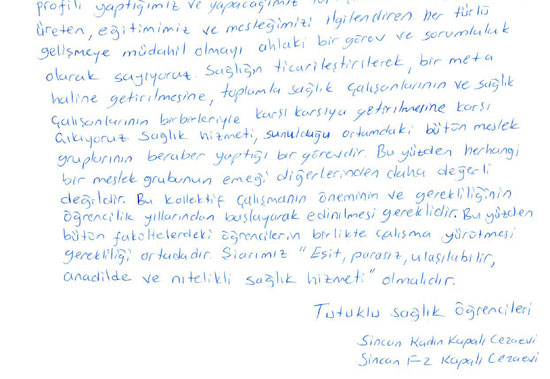 profili yaptığımız ve yapacağımız
üreten, eğitimimiz ve mesleğimizi ilgilendiren her türlü
gelişmeye müdahil olmayı ahlaki bir görev ve sorumluluk
olarak sayıyoruz. Sağlığın ticarileştirilerek, bir meta
haline getirilmesine, toplumla sağlık çalışanlarının ve sağlık
çalışanlarının birbirleriyle karşı karşıya getirilmesine karşı
çıkıyoruz. Sağlık hizmeti, sunulduğu ortamdaki bütün meslek
gruplarının beraber yaptığı bir görevdir. Bu yüzden herhangi
bir meslek grubunun emeği diğerlerinden daha değerli
değildir. Bu kollektif çalışmanın öneminin ve gerekliliğinin
öğrencilik yıllarından başlayarak edinilmesi gereklidir. Bu yüzden
bütün fakültelerdeki öğrencilerin birlikte çalışma yürütmesi
gerekliliği ortadadır. Şiarımız "Eşit, parasız, ulaşılabilir,
anadilde ve nitelikli sağlık hizmeti" olmalıdır.
Tutuklu Sağlık Öğrencileri
Sincan Kadın Kapalı Cezaevi
Sincan F-2 Kapalı Cezaevi